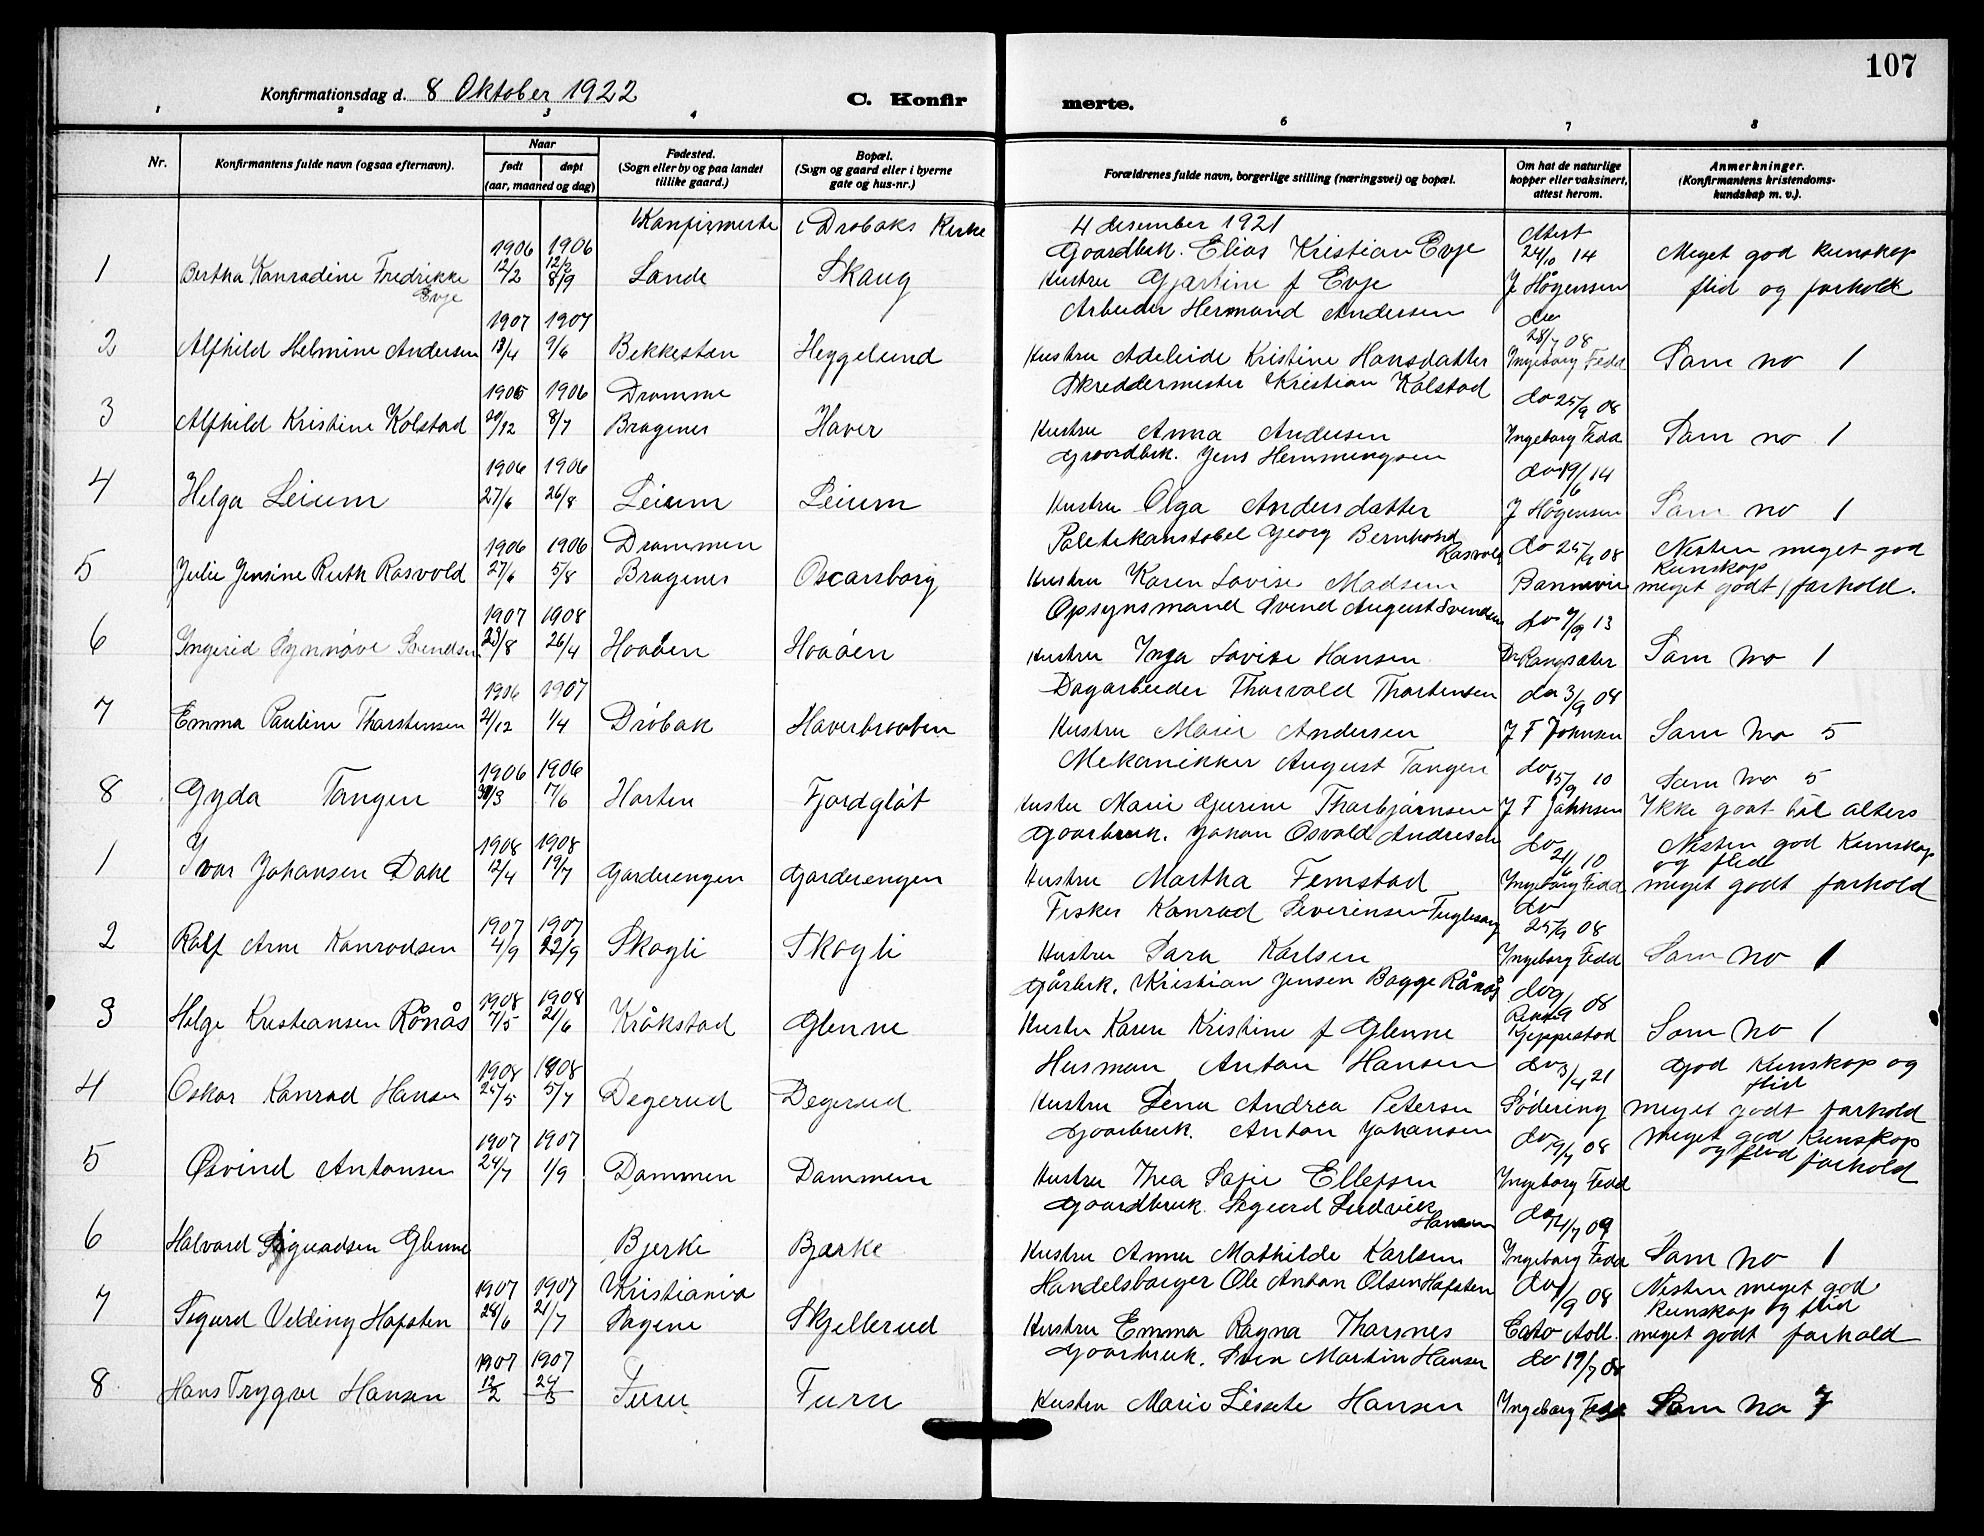 107
Konfirmationsdag d. 8 Oktober 1922
C. Konfirmerte.
1 2 3 4 6 7 8
Nr.
Konfirmantens fulde navn (ogsaa efternavn).
Naar
født døpt
(aar, maaned og dag)
Fødested.
(Sogn eller by og paa landet
tillike gaard.)
Bopæl.
(Sogn og gaard eller i byerne
gate og hus-nr.)
Forældrenes fulde navn, borgerlige stilling (næringsvei) og bopæl.
Om hat de naturlige
kopper eller vaksinert,
attest herom.
Anmerkninger.
(Konfirmantens kristendoms-
kundskap m. v.).
Konfirmerte i Drøbaks Kirke 4 desember 1921
1906 1906 Gaardbrk. Elias Kristian Evje Attest 24/10 14 Meget god kunskap
1 Bertha Konradine Fredrikke Evje 12/2 8/9 Lande Skaug Hustru Gjartine f Evje J Høgensen flid og forhold
1907 1907 Arbeider Hermand Andersen do 28/7 08
2 Alfhild Helmine Andersen 13/4 9/6 Bekkesten Heggelund Hustru Adeleide Kristine Hansdatter Ingeborg Fedd Som no 1
1905 1906 Dramme Skreddermester Kristian Kolstad do 25/9 08
3 Alfhild Kristine Kolstad 29/12 8/7 Bragenes Haver Hustru Anna Andersen Ingeborg Fedd Som no 1
1906 1906 Gaardbrk. Jens Hemmingsen do 19/6 14
4 Helga Leium 27/6 26/8 Leium Leium Hustru Olga Andersdatter J Høgensen Som no 1
1906 1906 Drammen Georg Bernhard Rasvold do 25/9 08 Nesten meget god kunskap
5 Julie Jensine Ruth Rasvold 27/6 5/8 Bragenes Oscarsborg Hustru Karen Lovise Madsen meget godt forhold.
1907 1908 Opsynsmand Svend August Svendsen do 9/9 13
6 Ingerid Synnøve Svendsen 23/8 26/4 Haaøen Haaøen Hustru Inga Lovise Hansen Som no 1
1906 1907 Dagarbeider Thorvald Thorstensen do 3/9 08
7 Emma Pauline Thorstensen 21/12 1/4 Drøbak Haverbraaten Hustru Marie Andersen J F Johnsen Som no 5
1906 1906 Mekanikker August Tangen do 15/9 10 Som no 5
8 Gyda Tangen 30/3 17/6 Horten Fjordgløt Hustru Marie Gurine Thorbjørnsen J F Johnsen Ikke gaat til alters
1908 1908 Gaarbruk. Johan Osvald Andresen do 21/6 10 Nesten god kunskap og flid
1 Ivar Johansen Dahl 12/4 19/7 Garderengen Garderengen Hustru Martha Femstad Ingeborg Fedd meget godt forhold
1907 1907 Fisker Konrad Severinsen Fuglesang do 25/9 08
2 Rolf Arne Konradsen 4/9 22/9 Skogli Skogli Hustru Sara Karlsen Ingeborg Fedd Som no 1
1908 1908 Gårbrk. Kristian Jensen Bagge Rånås do 9/9 08
3 Helge Kristiansen Rånås 7/5 21/6 Kråkstad Glenne Hustru Karen Kristine f Glenne Kjeppestad Som no 1
1908 1908 Husman Anton Hansen do 3/4 21 God kunskap og flid
4 Oskar Konrad Hansen 25/5 5/7 Degerud Degerud Hustru Lena Andrea Petersen Södering meget godt forhold
1907 1907 Gaarbruk. Anton Johansen do 19/7 08 meget god kunskap og flid forhold
5 Øivind Antonsen 24/7 1/9 Dammen Dammen Hustru Thea Sofie Ellefsen Ingeborg Fedd
Gaardbruk. Sigurd Ludvick Hansen do 14/7 09
6 Halvard Siguadsen Glenne Bjerke Bjærke Hustru Anna Mathilde Karlsen Ingeborg Fedd Som no 1
1907 1907 Kristiania Handelsborger Ole Anton Olsen Hofsten do 1/9 08 Nesten meget god kunskap og flid
7 Sigurd Velding Hofsten 28/6 21/7 Sagene Skjellerud Hustru Emma Ragna Thorsnes Cato Aall. meget godt forhold
1907 1907 Gaarbruk. Sven Martin Hansen do 19/7 08
8 Hans Trygve Hansen 12/2 24/3 Furu Furu Hustru Marie Lissete Hansen Ingeborg Fedd Som no 7